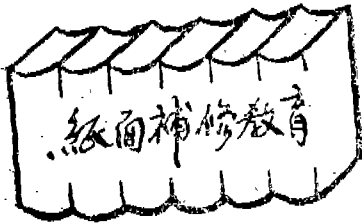 紙面補修敎育